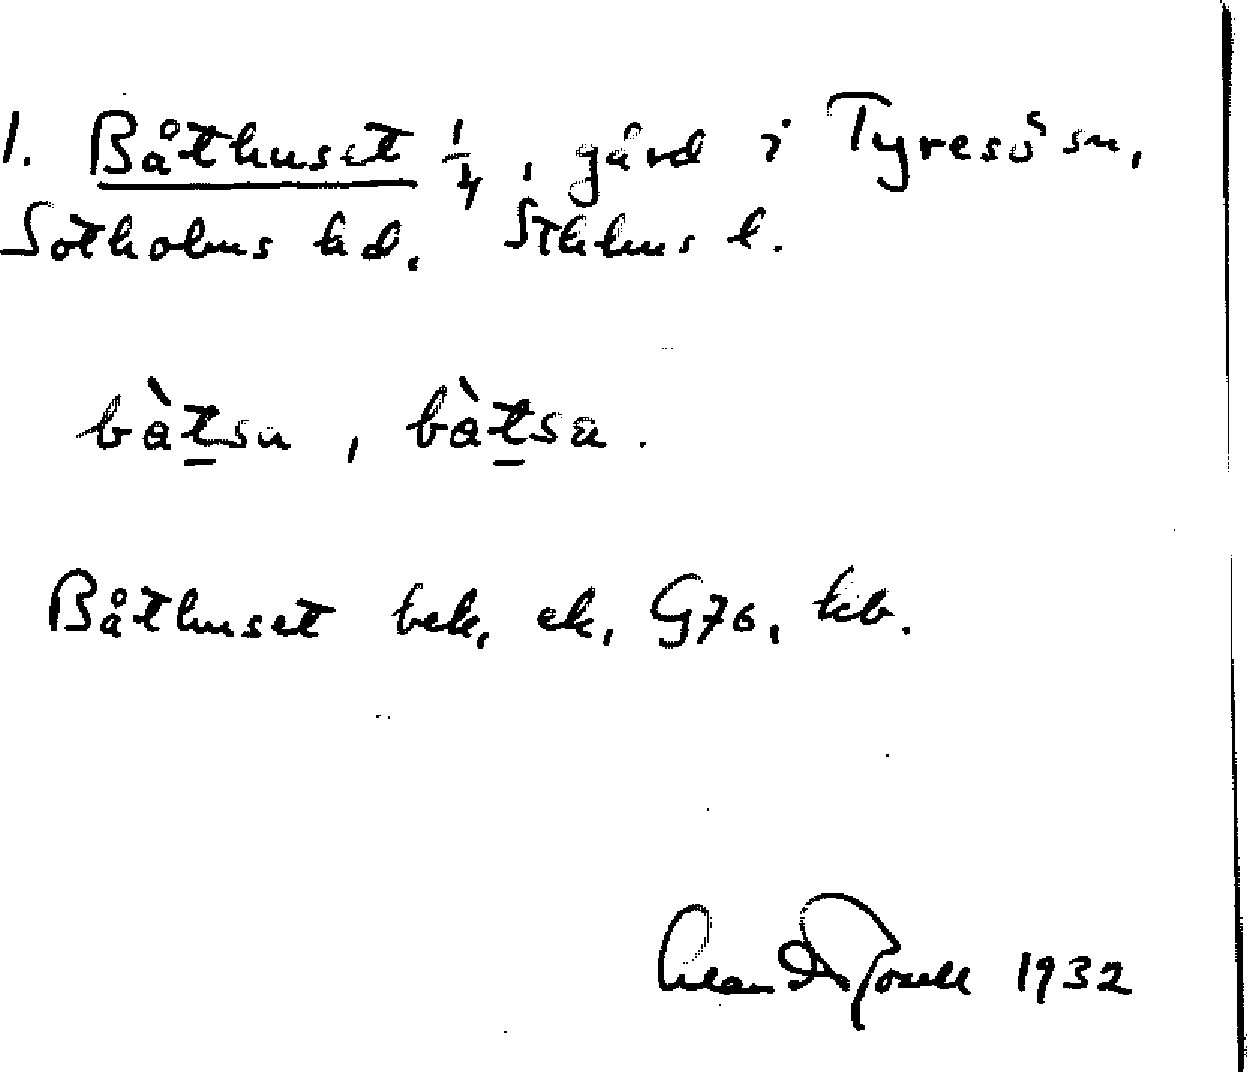 1. Båthuset 1/4, gård i Tyresö sn,
Sotholms hd. Sthlms l.
bàtsu, bàtsa.
Båthuset bek, ek, G76, kb.
1932